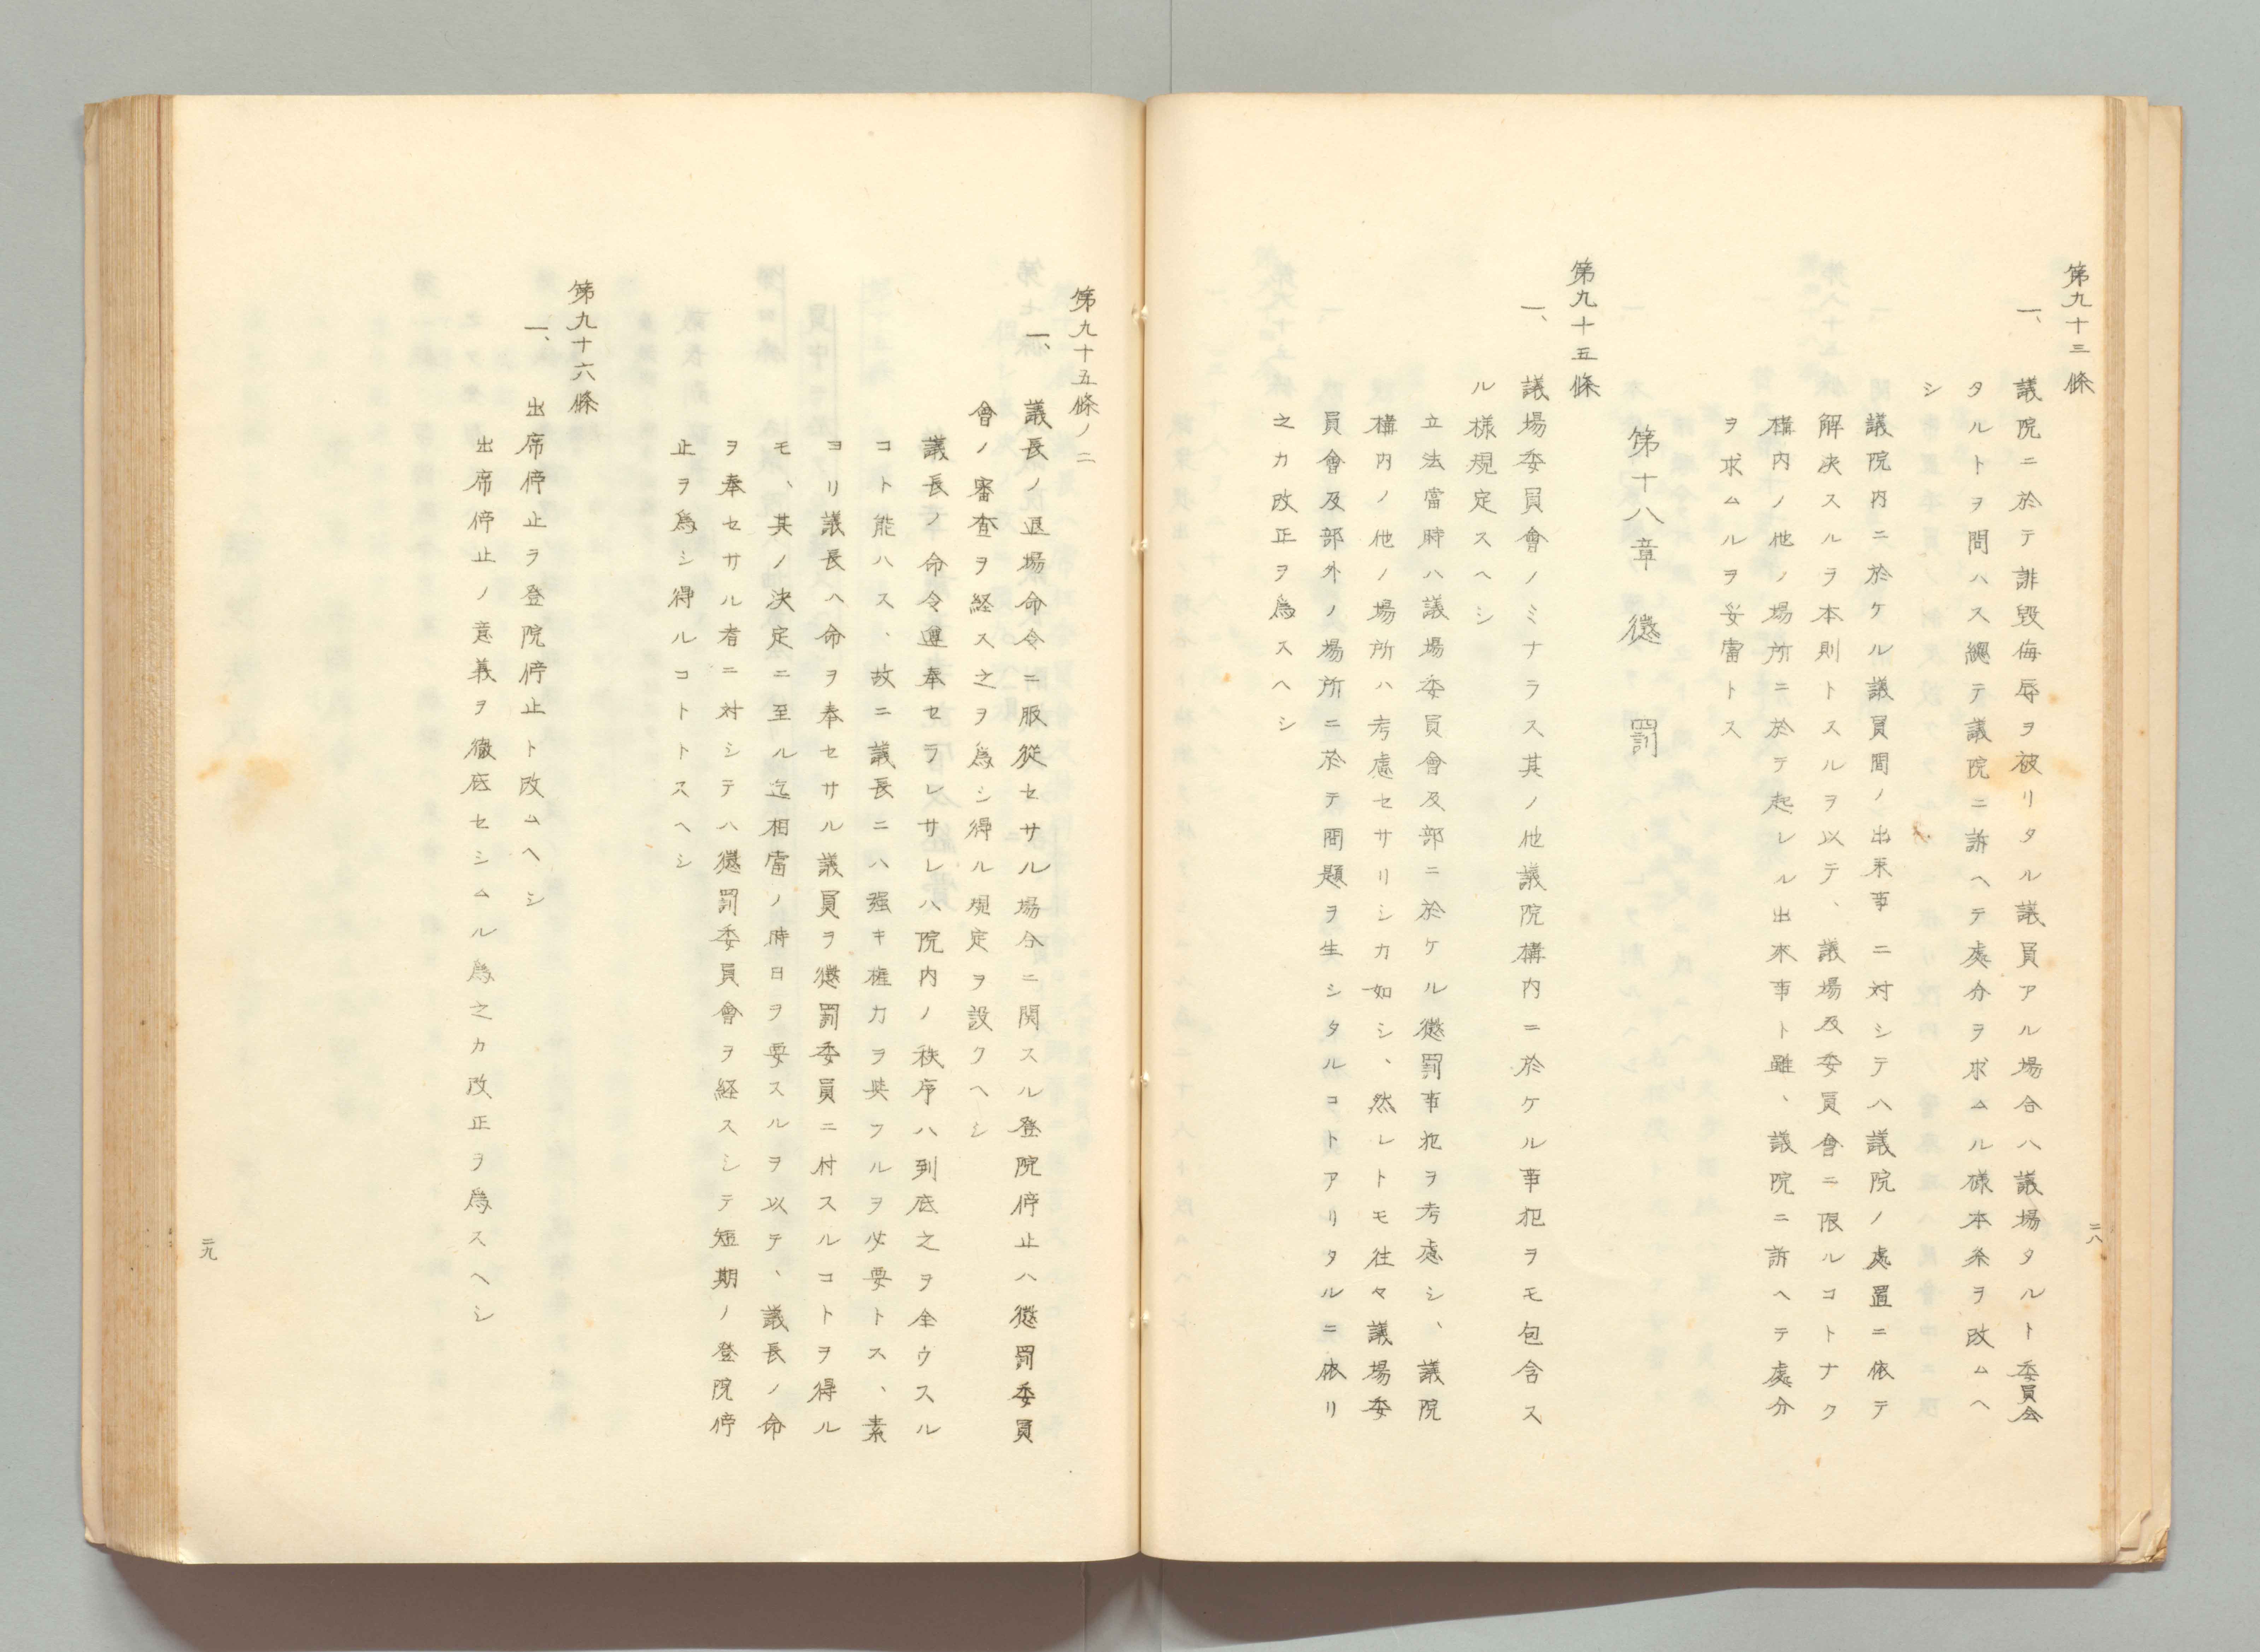 第九十三條
一、議院ニ於テ誹毀侮辱ヲ被リタル議員アル場合ハ議場タルト委員会
タルトヲ問ハス總テ議院ニ訴ヘテ處分ヲ求ムル樣本条ヲ改ムヘ
シ
議院内ニ於ケル議員間ノ出来事ニ対シテハ議院ノ處置ニ依テ
解決スルヲ本則トスルヲ以テ、議場及委員會ニ限ルコトナク
構内ノ他ノ場所ニ於テ起レル出来事ト雖、議院ニ訴ヘテ處分
ヲ求ムルヲ妥當トス
第十八章 懲罰
第九十五條
一、議場委員會ノミナラス其ノ他議院構内ニ於ケル事犯ヲモ包含ス
ル様規定スヘシ
立法當時ハ議場委員會及部ニ於ケル懲罰事犯ヲ考慮シ、議院
構内ノ他ノ場所ハ考慮セサリシカ如シ、然レトモ往々議場委
員會及部外ノ場所ニ於テ問題ヲ生シタルコトアリタルニ依リ
之カ改正ヲ爲スヘシ
二八
第九十五條ノ二
一、議長ノ退場命令ニ服從セサル場合ニ関スル登院停止ハ懲罰委員
會ノ審査ヲ経ス之ヲ爲シ得ル規定ヲ設クヘシ
議長ノ命令遵奉セラレサレハ院内ノ秩序ハ到底之ヲ全ウスル
コト能ハス、故ニ議長ニハ强キ権力ヲ與フルヲ必要トス、素
ヨリ議長ヘ命ヲ奉セサル議員ヲ懲罰委員ニ付スルコトヲ得ル
モ、其ノ決定ニ至ル迄相當ノ時日ヲ要スルヲ以テ、議長ノ命
ヲ奉セサル者ニ対シテハ懲罰委員會ヲ経スシテ短期ノ登院停
止ヲ爲シ得ルコトトスヘシ
第九十六條
一、出席停止ヲ登院停止ト改ムヘシ
出席停止ノ意義ヲ徹底セシムル爲之カ改正ヲ爲スヘシ
二九